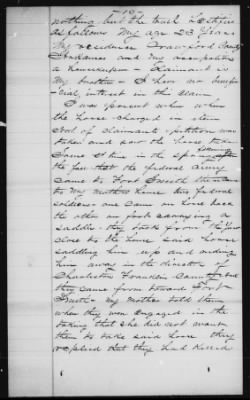 -10-
nothing but the truth testifies
as follows My age 23 years
My residence Crawford County
Arkansas and my occupation
a housekeeper Claimant is
my brother I have no benefi-
cial interest in the claim
I was present when
the horse charged in item
No 1 of claimants petition was
taken and saw the horse taken
Some time in the spring after
the fall that the Federal Army
came to Fort Smith
to my mothers house two federal
soldiers one came on horse back
the other on foot carrying a
saddle they took from the
close to the house said horse
saddling him up and riding
him away in the direction of
Charleston Franklin County
they came from toward Fort
Smith My mother told them
when they were engaged in the
taking that she did not want
them to take said horse they
replied that they had killed